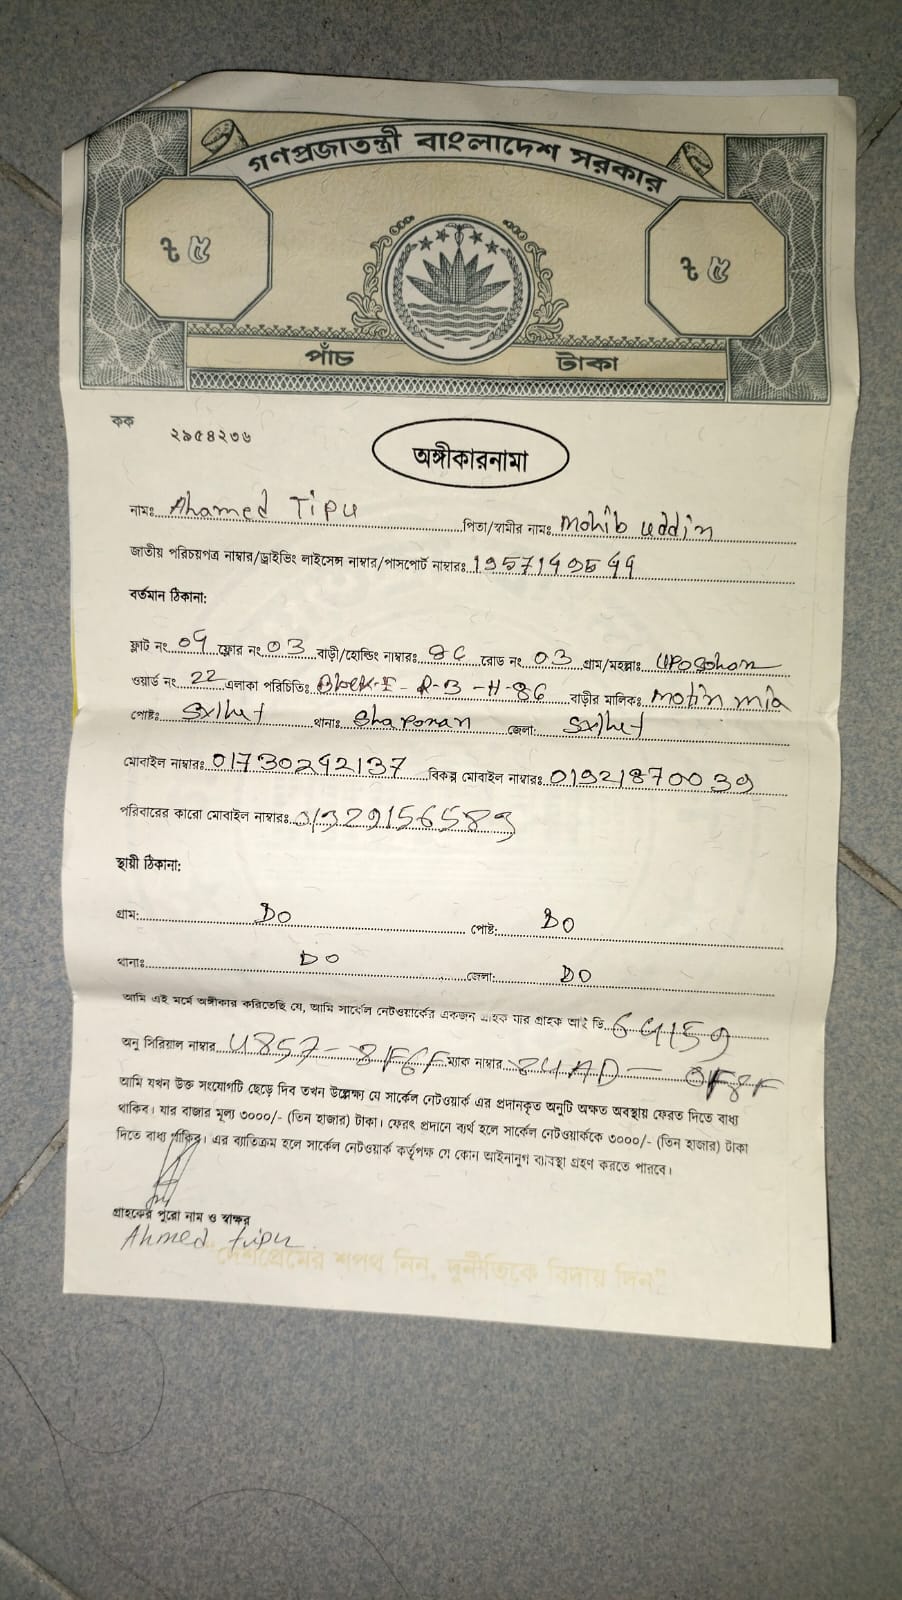 গণপ্রজাতন্ত্রী বাংলাদেশ সরকার
৳ ৫ ৳ ৫
পাঁচ টাকা
কক ২৯৫৪২৩৬
অঙ্গীকারনামা
নামঃ Ahamed Tipu পিতা/স্বামীর নামঃ Mohib uddin
জাতীয় পরিচয়পত্র নাম্বার/ড্রাইভিং লাইসেন্স নাম্বার/পাসপোর্ট নাম্বারঃ
বর্তমান ঠিকানা:
ফ্লাট নং ফ্লোর নং 03 বাড়ী/হোল্ডিং নাম্বারঃ রোড নং 03 গ্রাম/মহল্লাঃ
ওয়ার্ড নং 22 এলাকা পরিচিতিঃ বাড়ীর মালিকঃ motin mia
পোষ্টঃ Sylhet থানাঃ জেলা: Sylhet
মোবাইল নাম্বারঃ বিকল্প মোবাইল নাম্বারঃ
পরিবারের কারো মোবাইল নাম্বারঃ
স্থায়ী ঠিকানা:
গ্রাম: DO পোষ্ট: DO
থানাঃ DO জেলা: DO
আমি এই মর্মে অঙ্গীকার করিতেছি যে, আমি সার্কেল নেটওয়ার্কের একজন গ্রাহক যার গ্রাহক আই ডি
অনু সিরিয়াল নাম্বার ম্যাক নাম্বার
আমি যখন উক্ত সংযোগটি ছেড়ে দিব তখন উল্লেক্ষ্য যে সার্কেল নেটওয়ার্ক এর প্রদানকৃত অনুটি অক্ষত অবস্থায় ফেরত দিতে বাধ্য
থাকিব। যার বাজার মূল্য ৩০০০/- (তিন হাজার) টাকা। ফেরৎ প্রদানে ব্যর্থ হলে সার্কেল নেটওয়ার্ককে ৩০০০/- (তিন হাজার) টাকা
দিতে বাধ্য থাকিব। এর ব্যতিক্রম হলে সার্কেল নেটওয়ার্ক কর্তৃপক্ষ যে কোন আইনানুগ ব্যবস্থা গ্রহণ করতে পারবে।
গ্রাহকের পুরো নাম ও স্বাক্ষর
Ahmed tipu
"দেশপ্রেমের শপথ নিন, দুর্নীতিকে বিদায় দিন"